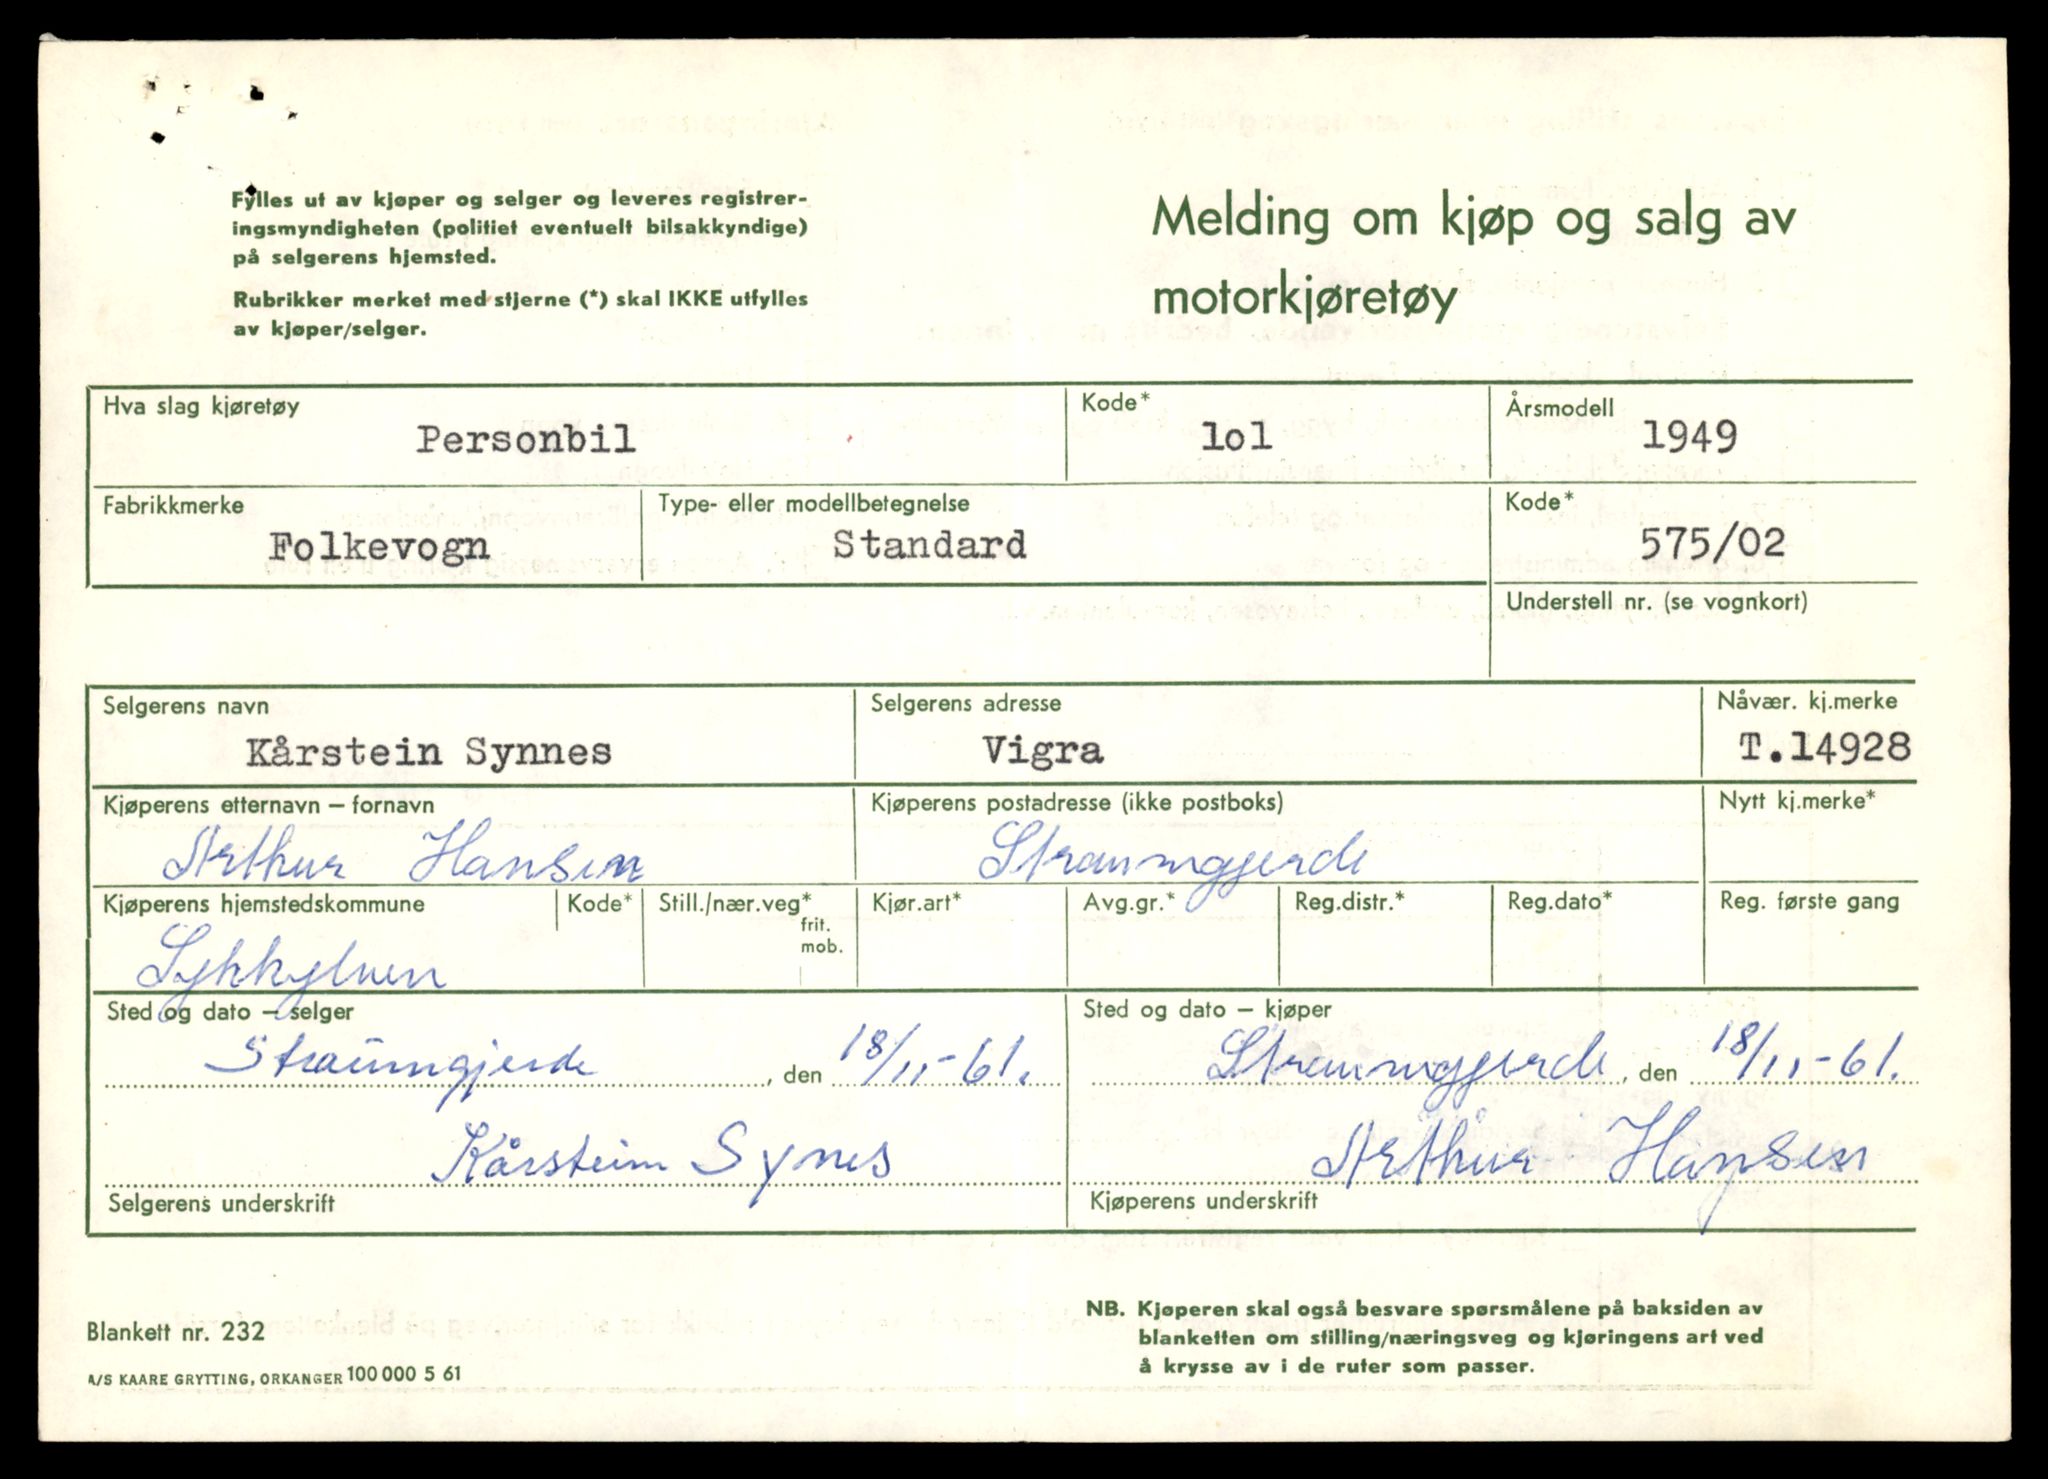 Fylles ut av kjøper og selger og leveres registrer-
ingsmyndigheten (politiet eventuelt bilsakkyndige)
på selgerens hjemsted.
Rubrikker merket med stjerne (*) skal IKKE utfylles
av kjøper/selger.
Melding om kjøp og salg av
motorkjøretøy
Hva slag kjøretøy
Personbil
Kode*
lol
Årsmodell
1949
Fabrikkmerke
Folkevogn
Type- eller modellbetegnelse
Standard
Kode*
575/02
Understell nr. (se vognkort)
Selgerens navn
Kårstein Synnes
Selgerens adresse
Vigra
Nåvær. kj.merke
T.14928
Kjøperens etternavn – fornavn
Arthur Hansen
Kjøperens postadresse (ikke postboks)
Straumgjerde
Nytt kj.merke*
Kjøperens hjemstedskommune
Sykkylven
Kode*
Still./nær.veg*
frit.
mob.
Kjør.art*
Avg.gr.*
Reg.distr.*
Reg.dato*
Reg. første gang
Sted og dato – selger
Straumgjerde, den 18/11-61.
Kårstein Synes
Selgerens underskrift
Sted og dato – kjøper
Straumgjerde, den 18/11-61.
Arthur Hansen
Kjøperens underskrift
Blankett nr. 232
A/S KAARE GRYTTING, ORKANGER 100 000 5 61
NB. Kjøperen skal også besvare spørsmålene på baksiden av
blanketten om stilling/næringsveg og kjøringens art ved
å krysse av i de ruter som passer.